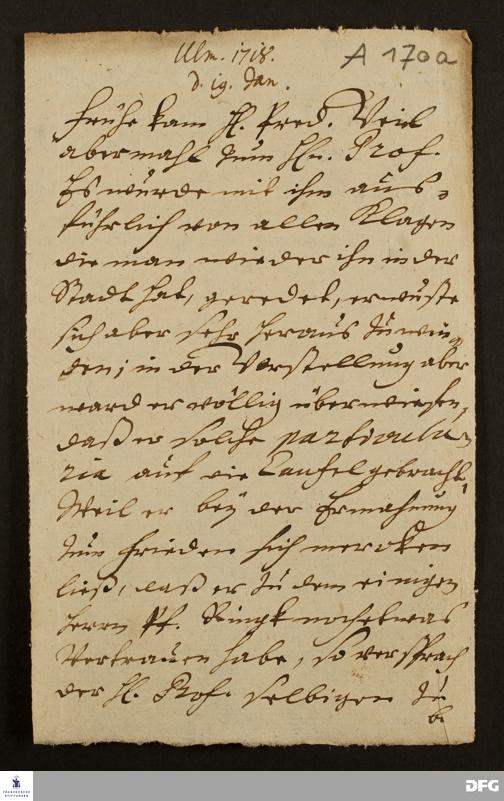 Ulm. 1718.
d. 19. Jan.
A 170a
Frühe kam H. Pred. Veil
abermahl zum Hn. Prof.
Es wurde mit ihm aus-
führlich von allen Klagen
die man wieder ihn in der
Stadt hat, geredet, er wuste
sich aber sehr heraus zu win-
den; in der Vorstellung aber
ward er völlig überwiesen,
daß er solche particula-
ria auf die Cantzel gebracht,
Weil er bey der Ermahnung
zum Frieden sich mercken
ließ, daß er zu dem einigen
Herrn Pf. noch etwas
Vertrauen habe, so versprach
der H. Prof. selbigen zu
b.
FRANCKESCHE STIFTUNGEN
DFG